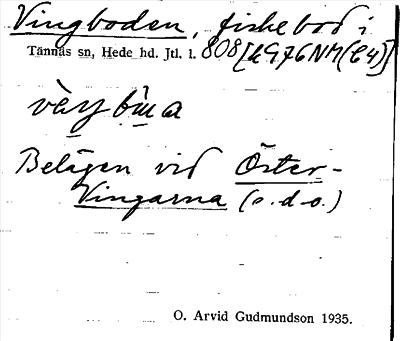 Vingboden, fiskebod i
Tännäs sn, Hede hd. Jtl. l. 808 [kG76NM(C4)]
Belägen vid Öster-
Vingarna (s.d.o.)
O. Arvid Gudmundson 1935.